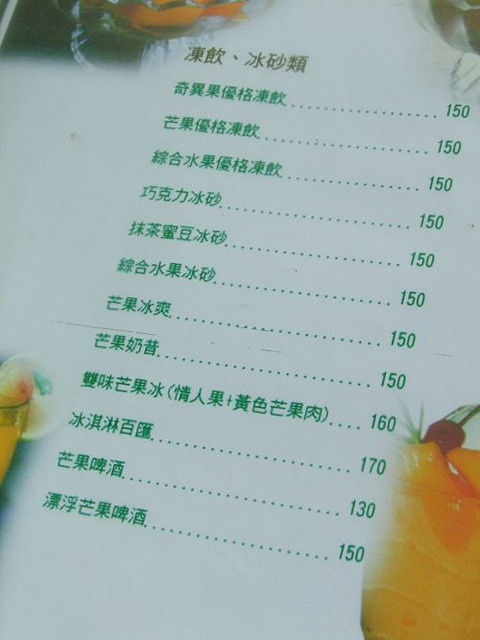 凍飲、冰砂類
奇異果優格凍飲 150
芒果優格凍飲 150
綜合水果優格凍飲 150
巧克力冰砂 150
抹茶蜜豆冰砂 150
綜合水果冰砂 150
芒果冰爽 150
芒果奶昔 150
雙味芒果冰(情人果+黃色芒果肉) 160
冰淇淋百匯 170
芒果啤酒 130
漂浮芒果啤酒 150